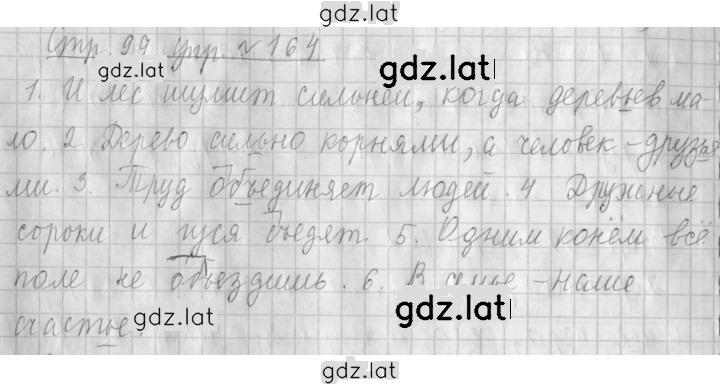 gdz.lat
Стр. 99 упр. № 164
gdz.lat gdz.lat
1. И лес шумит сильней, когда деревьев ма-
ло. 2. Дерево сильно корнями, а человек - друзья
ми. 3. Труд объединяет людей. 4. Дружные
сороки и гуся съедят. 5. Одним конём всё
поле не объездишь. 6. В семье - наше
gdz.lat gdz.lat
счастье.
gdz.lat